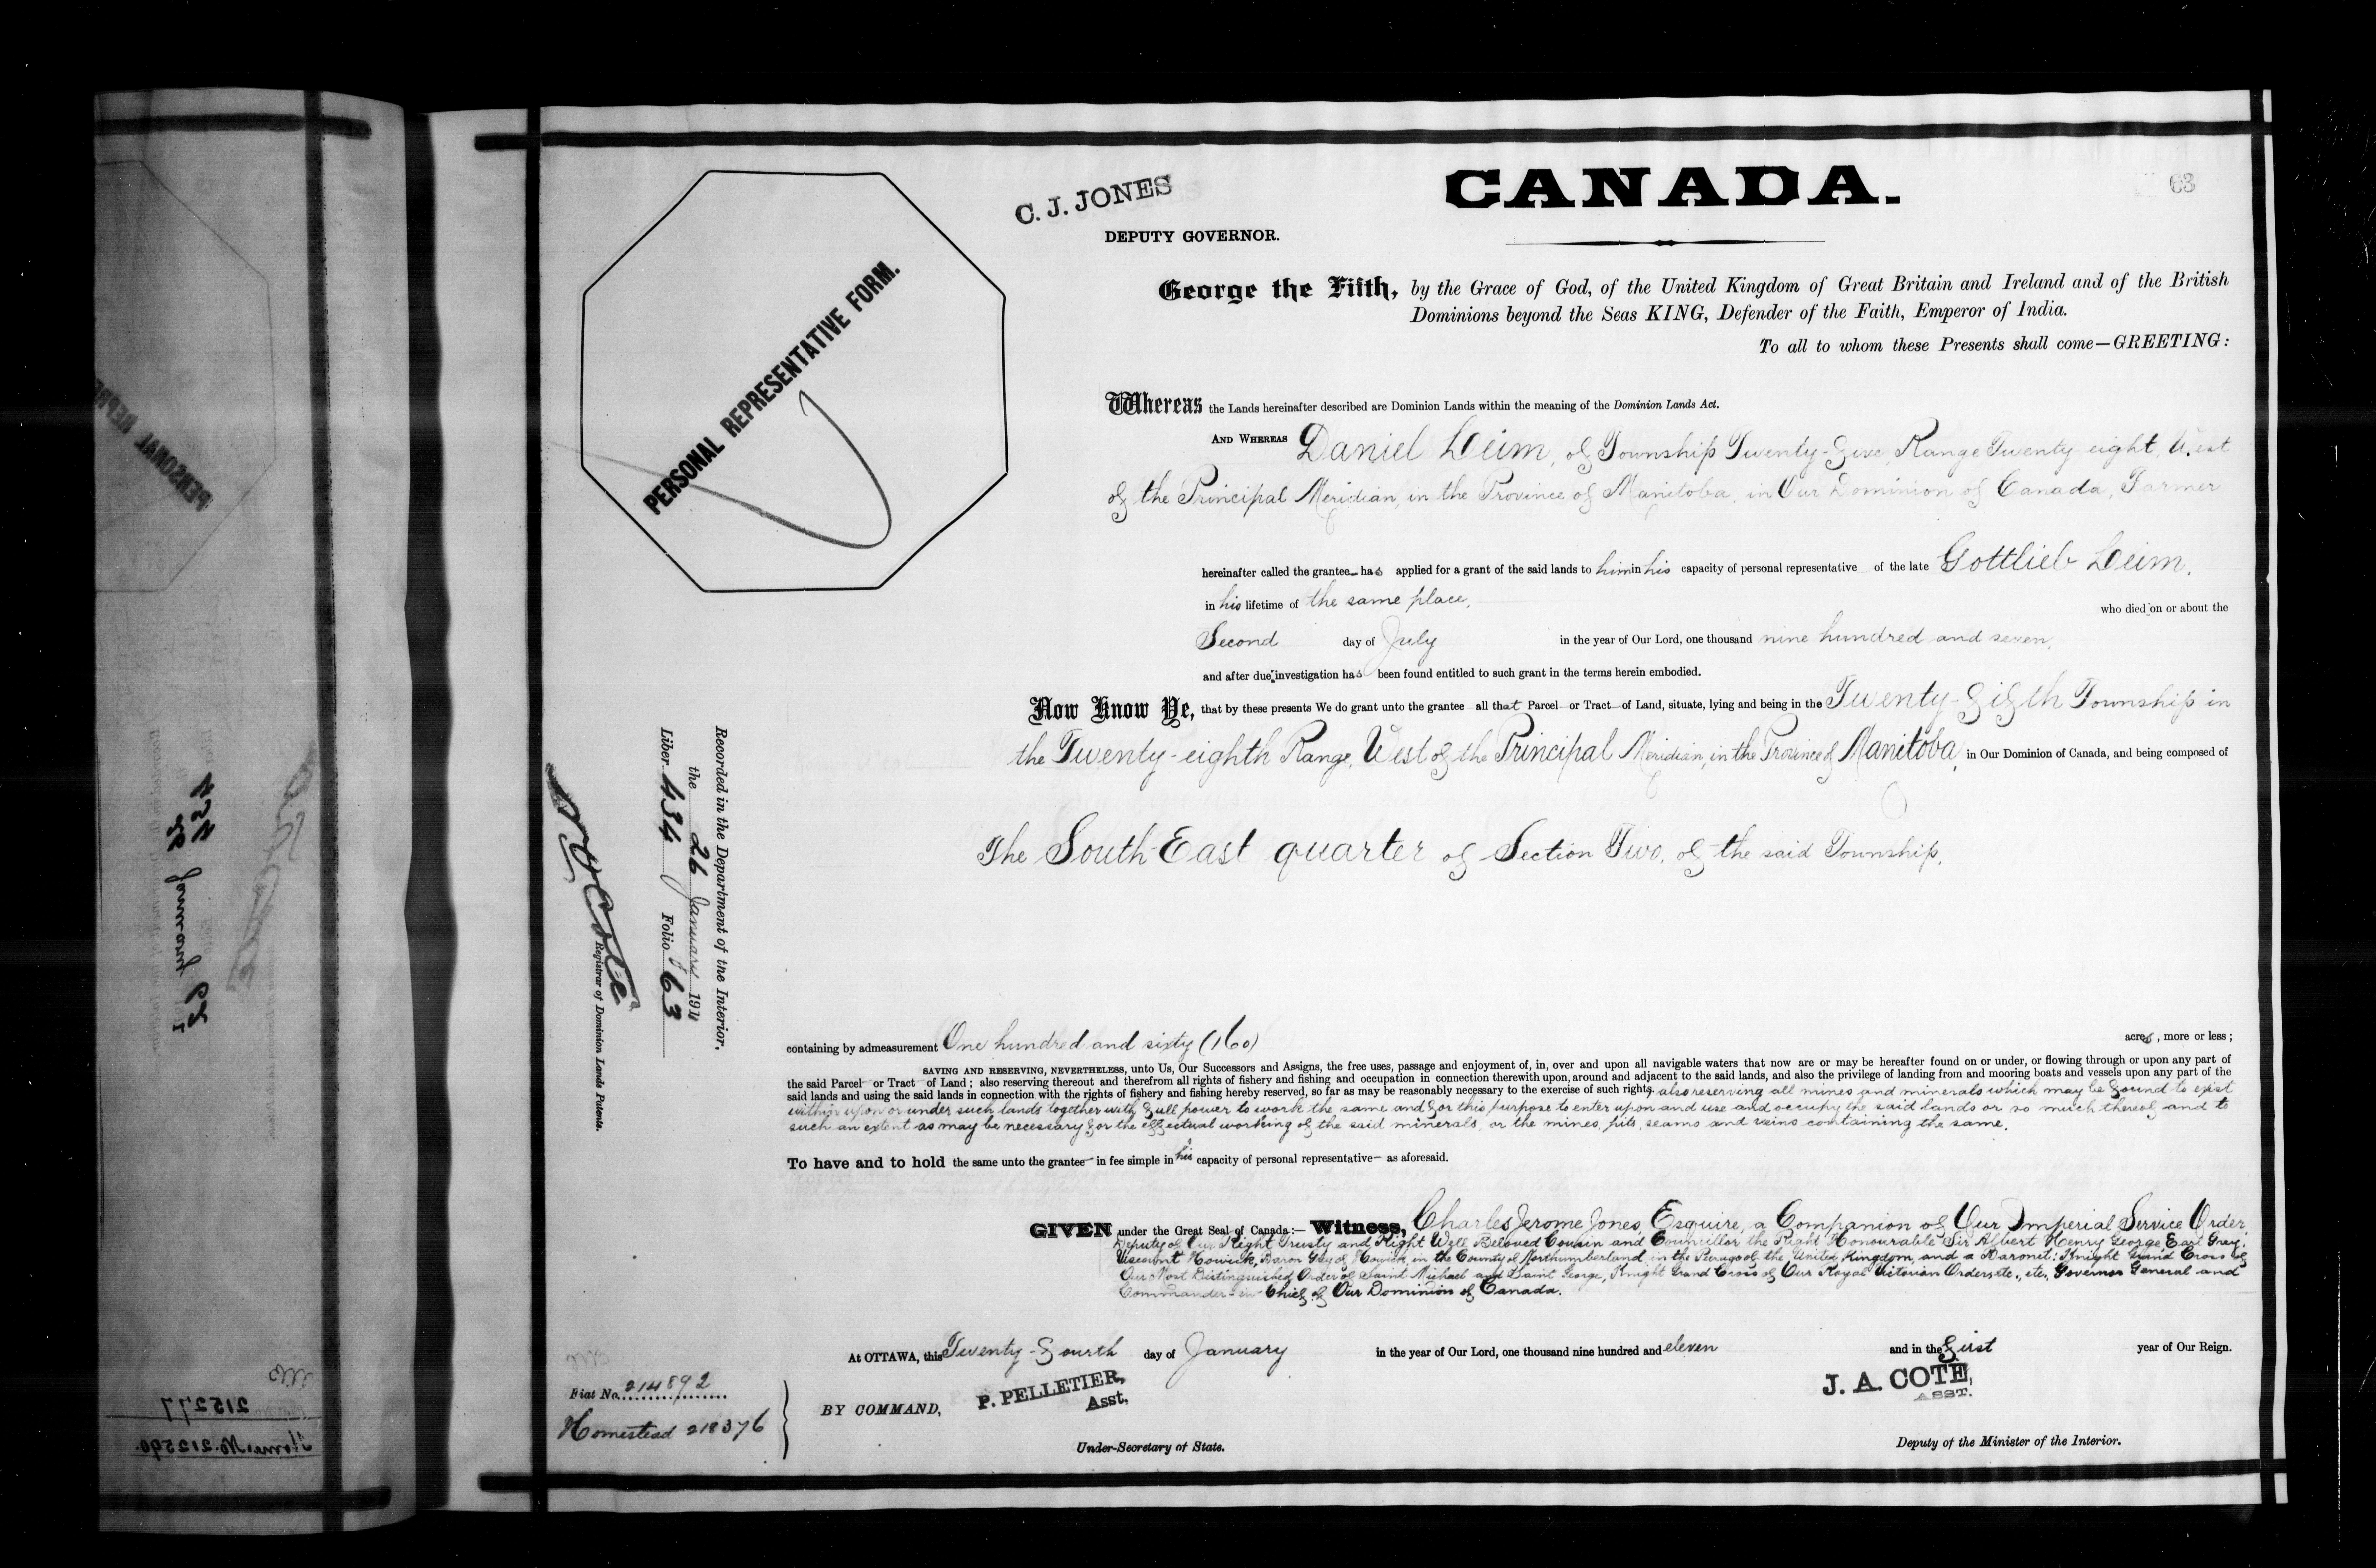 CANADA.
63
C. J. JONES
DEPUTY GOVERNOR.
PERSONAL REPRESENTATIVE FORM.
George the Fifth, by the Grace of God, of the United Kingdom of Great Britain and Ireland and of the British
Dominions beyond the Seas KING, Defender of the Faith, Emperor of India.
To all to whom these Presents shall come—GREETING:
Whereas the Lands hereinafter described are Dominion Lands within the meaning of the Dominion Lands Act.
AND WHEREAS Daniel Leim, of Township Twenty-five, Range Twenty eight, West
of the Principal Meridian, in the Province of Manitoba, in Our Dominion of Canada, Farmer
hereinafter called the grantee has applied for a grant of the said lands to him in his capacity of personal representative of the late Gottlieb Leim,
in his lifetime of the same place,
who died on or about the
Second day of July in the year of Our Lord, one thousand nine hundred and seven,
and after due investigation has been found entitled to such grant in the terms herein embodied.
Now Know Ye, that by these presents We do grant unto the grantee all that Parcel or Tract of Land, situate, lying and being in the Twenty-fifth Township in
the Twenty-eighth Range, West of the Principal Meridian, in the Province of Manitoba, in Our Dominion of Canada, and being composed of
The South East quarter of Section Two, of the said Township,
containing by admeasurement One hundred and sixty (160) acres, more or less;
SAVING AND RESERVING, NEVERTHELESS, unto Us, Our Successors and Assigns, the free uses, passage and enjoyment of, in, over and upon all navigable waters that now are or may be hereafter found on or under, or flowing through or upon any part of
the said Parcel or Tract of Land; also reserving thereout and therefrom all rights of fishery and fishing and occupation in connection therewith upon, around and adjacent to the said lands, and also the privilege of landing from and mooring boats and vessels upon any part of the
said lands and using the said lands in connection with the rights of fishery and fishing hereby reserved, so far as may be reasonably necessary to the exercise of such rights, also reserving all mines and minerals which may be found to exist
within upon or under such lands together with full power to work the same and for this purpose to enter upon and use and occupy the said lands or so much thereof and to
such an extent as may be necessary for the effectual working of the said minerals, or the mines, pits, seams and veins containing the same.
To have and to hold the same unto the grantee in fee simple in his capacity of personal representative as aforesaid.
GIVEN under the Great Seal of Canada:— Witness, Charles Jerome Jones, Esquire, a Companion of Our Imperial Service Order,
Deputy of Our Right Trusty and Right Well Beloved Cousin and Councillor the Right Honourable Sir Albert Henry George, Earl Grey,
Viscount Howick, Baron Grey of Howick, in the County of Northumberland, in the Peerage of the United Kingdom, and a Baronet; Knight Grand Cross of
Our Most Distinguished Order of Saint Michael and Saint George, Knight Grand Cross of Our Royal Victorian Order, etc., etc., Governor General and
Commander-in-Chief of Our Dominion of Canada.
At OTTAWA, this Twenty-fourth day of January in the year of Our Lord, one thousand nine hundred and eleven and in the first year of Our Reign.
BY COMMAND,
P. PELLETIER,
Asst.
Under-Secretary of State.
J. A. COTE,
ASST.
Deputy of the Minister of the Interior.
Fiat No. 214892
Homestead 218376
Recorded in the Department of the Interior,
the 26 January 1911
Liber 434 Folio 63
Registrar of Dominion Lands Patents.
PERSONAL REPRE
215277
Home. No. 212590.